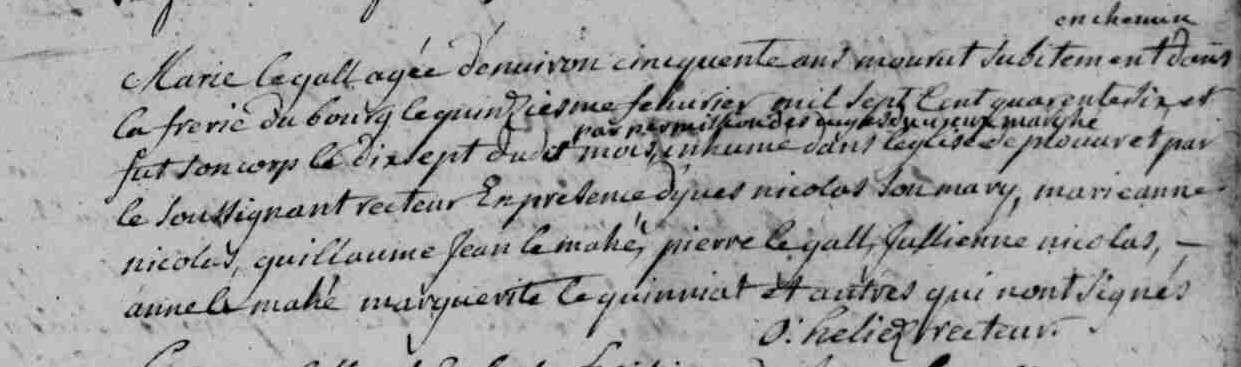 en chemin
Marie le gall agée d'enuiron cincquente ans mourut subitement dans
la frerie du bourg le quinziesme feburier mil sept Cent quarente six, et
par permission des juges du vieux marché
fut son corp le dix sept dudt mois, inhumé dans l'eglise de plouaret par
le soussignant recteur En presence d'yues nicolas son mary, marie anne
nicolas, guillaume Jean le mahé, pierre le gall, Jullienne nicolas, –
anne le mahé marguerite le quinriat et autres qui n'ont signés
recteur.